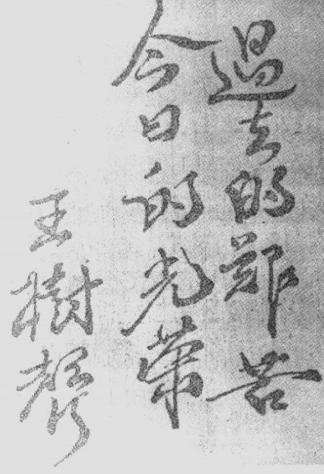 過去的艱苦
今日的光榮
王樹聲